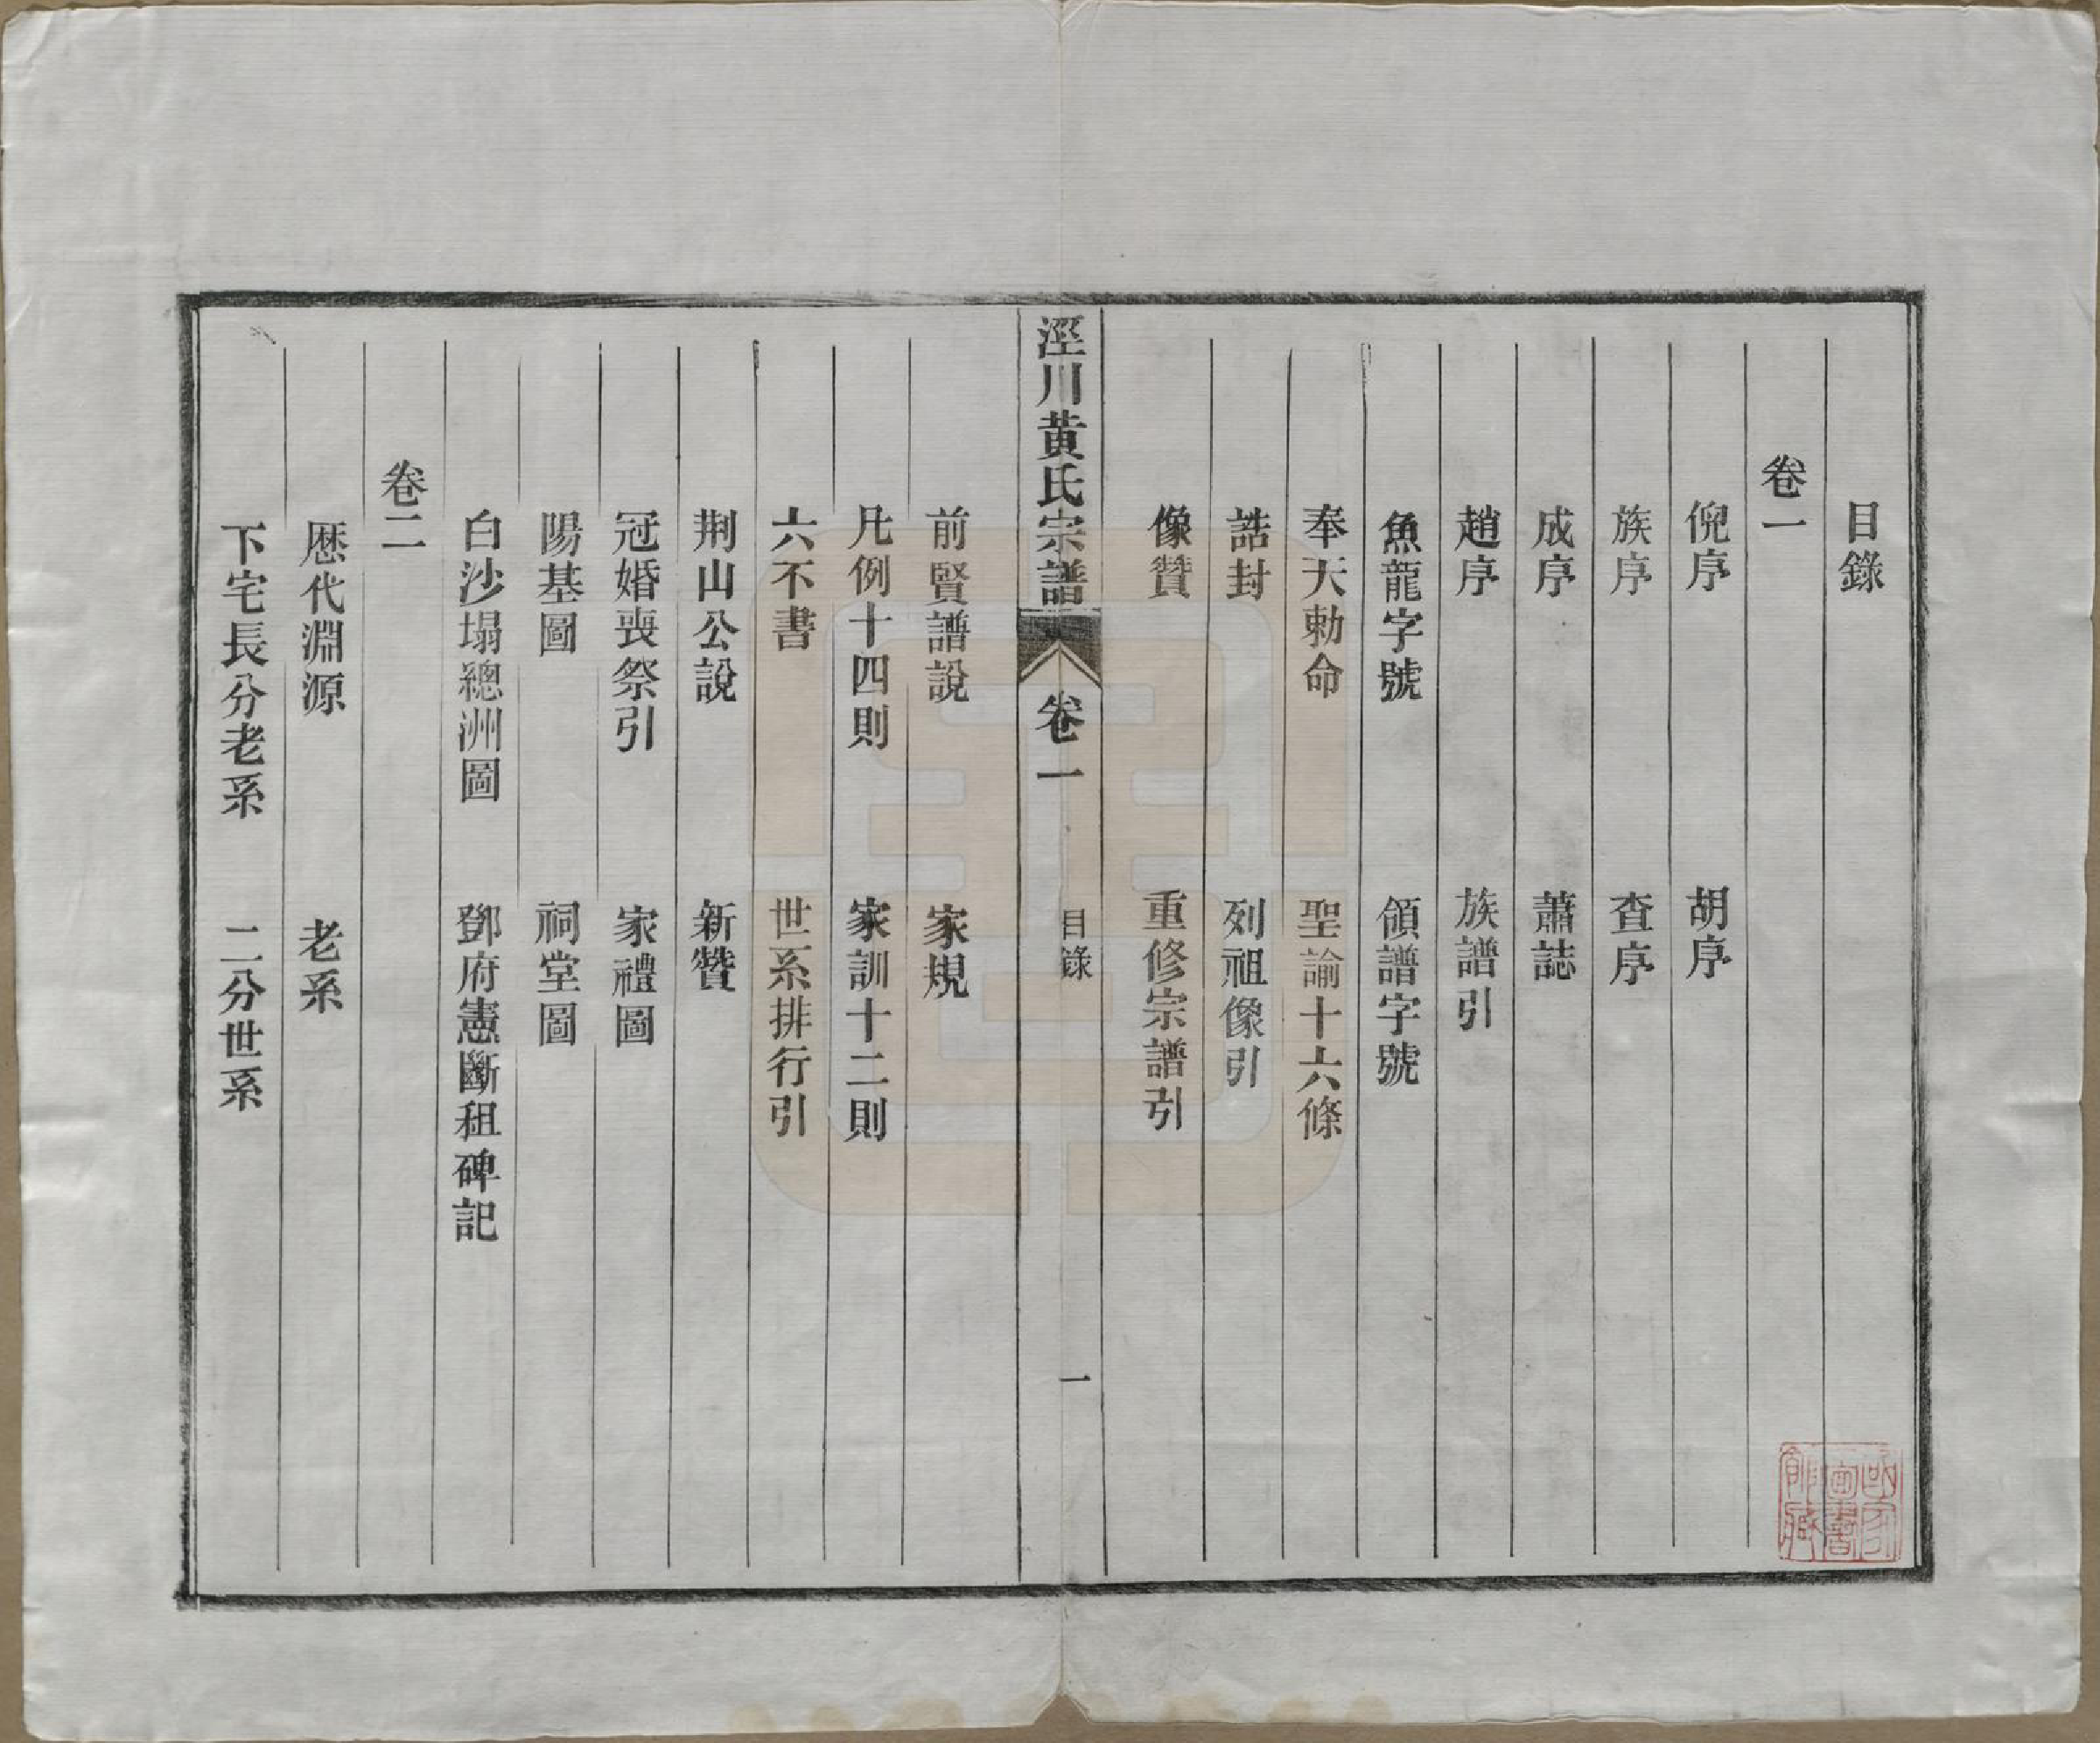 目錄
卷一
倪序　胡序
族序　查序
成序　蕭誌
趙序　族譜引
魚龍字號　領譜字號
奉天勅命　聖諭十六條
誥封　列祖像引
像贊　重修宗譜引
涇川黄氏宗譜　卷一　目錄　一
前賢譜說　家規
凡例十四則　家訓十二則
六不書　世系排行引
荆山公說　新贊
冠婚喪祭引　家禮圖
陽基圖　祠堂圖
白沙塌總洲圖　鄧府憲斷租碑記
卷二
歷代淵源　老系
下宅長分老系　二分世系